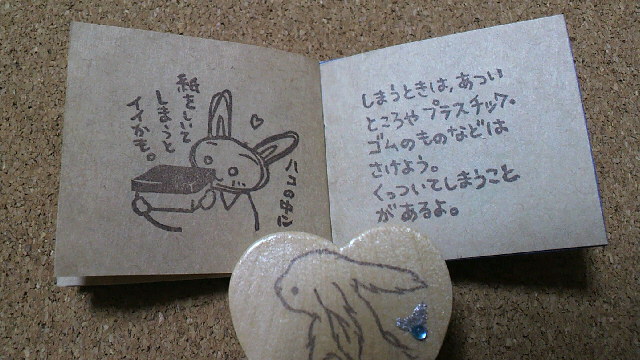 ハコの中に
紙をしいて
しまうと
イイかも。
しまうときは、あつい
ところや プラスチック。
ゴムのものなどは
さけよう。
くっついてしまうこと
があるよ。